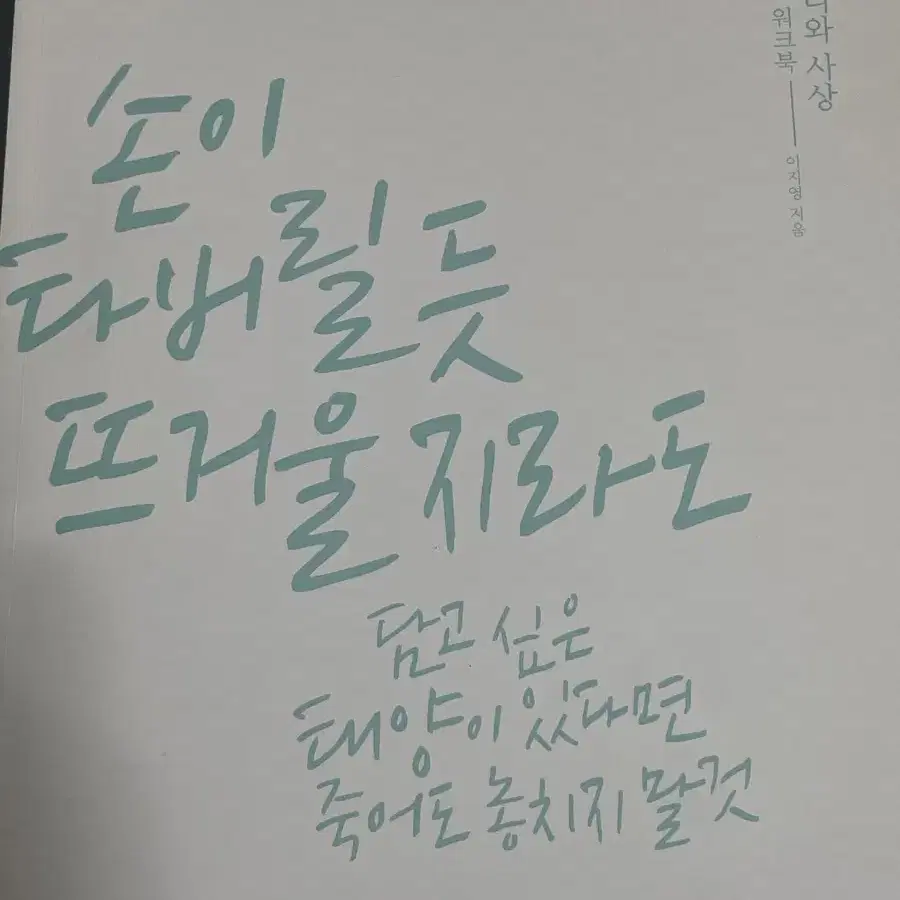 손이
타버릴 듯
뜨거울지라도
담고 싶은
태양이 있다면
죽어도 놓치지 말 것
와 사상
워크북
이지영 지음